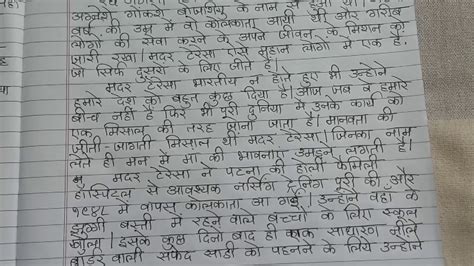 अग्नेसे गोंकशे बोजशियु के नाम से हुआ था।
वर्ष की उम्र में वो कोलकाता आयी थी और गरीब
लोगों की सेवा करने के अपने जीवन के मिशन को
जारी रखा। मदर टेरेसा ऐसे महान लोगों में एक हैं
जो सिर्फ दूसरों के लिए जीते हैं।
मदर टेरेसा भारतीय न होते हुए भी उन्होने
हमारे देश को बहुत कुछ दिया है। आज जब वे हमारे
बीच नहीं हैं फिर भी पूरी दुनिया में उनके कार्य को
एक मिसाल की तरह जाना जाता है। मानवता की
जीती-जागती मिसाल थी मदर टेरेसा। जिनका नाम
लेते ही मन में मां की भावनाएं उमड़ने लगती हैं।
मदर टेरेसा ने पटना की होली फैमिली
हास्पिटल से आवश्यक नर्सिग ट्रेनिंग पूरी की और
१९४८ में वापस कोलकाता आ गईं। उन्होंने वहां के
झुग्गी बस्ती में रहने वाले बच्चों के लिए स्कूल
खोला। इसके कुछ दिनों बाद ही एक साधारण नीले
बॉर्डर वाली सफेद साडी को पहनने के लिये उन्होने